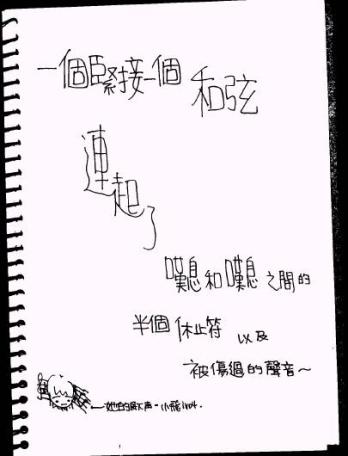 一個緊接一個 和弦
連起了
嘆息和嘆息之間的
半個休止符 以及
被傷過的聲音～